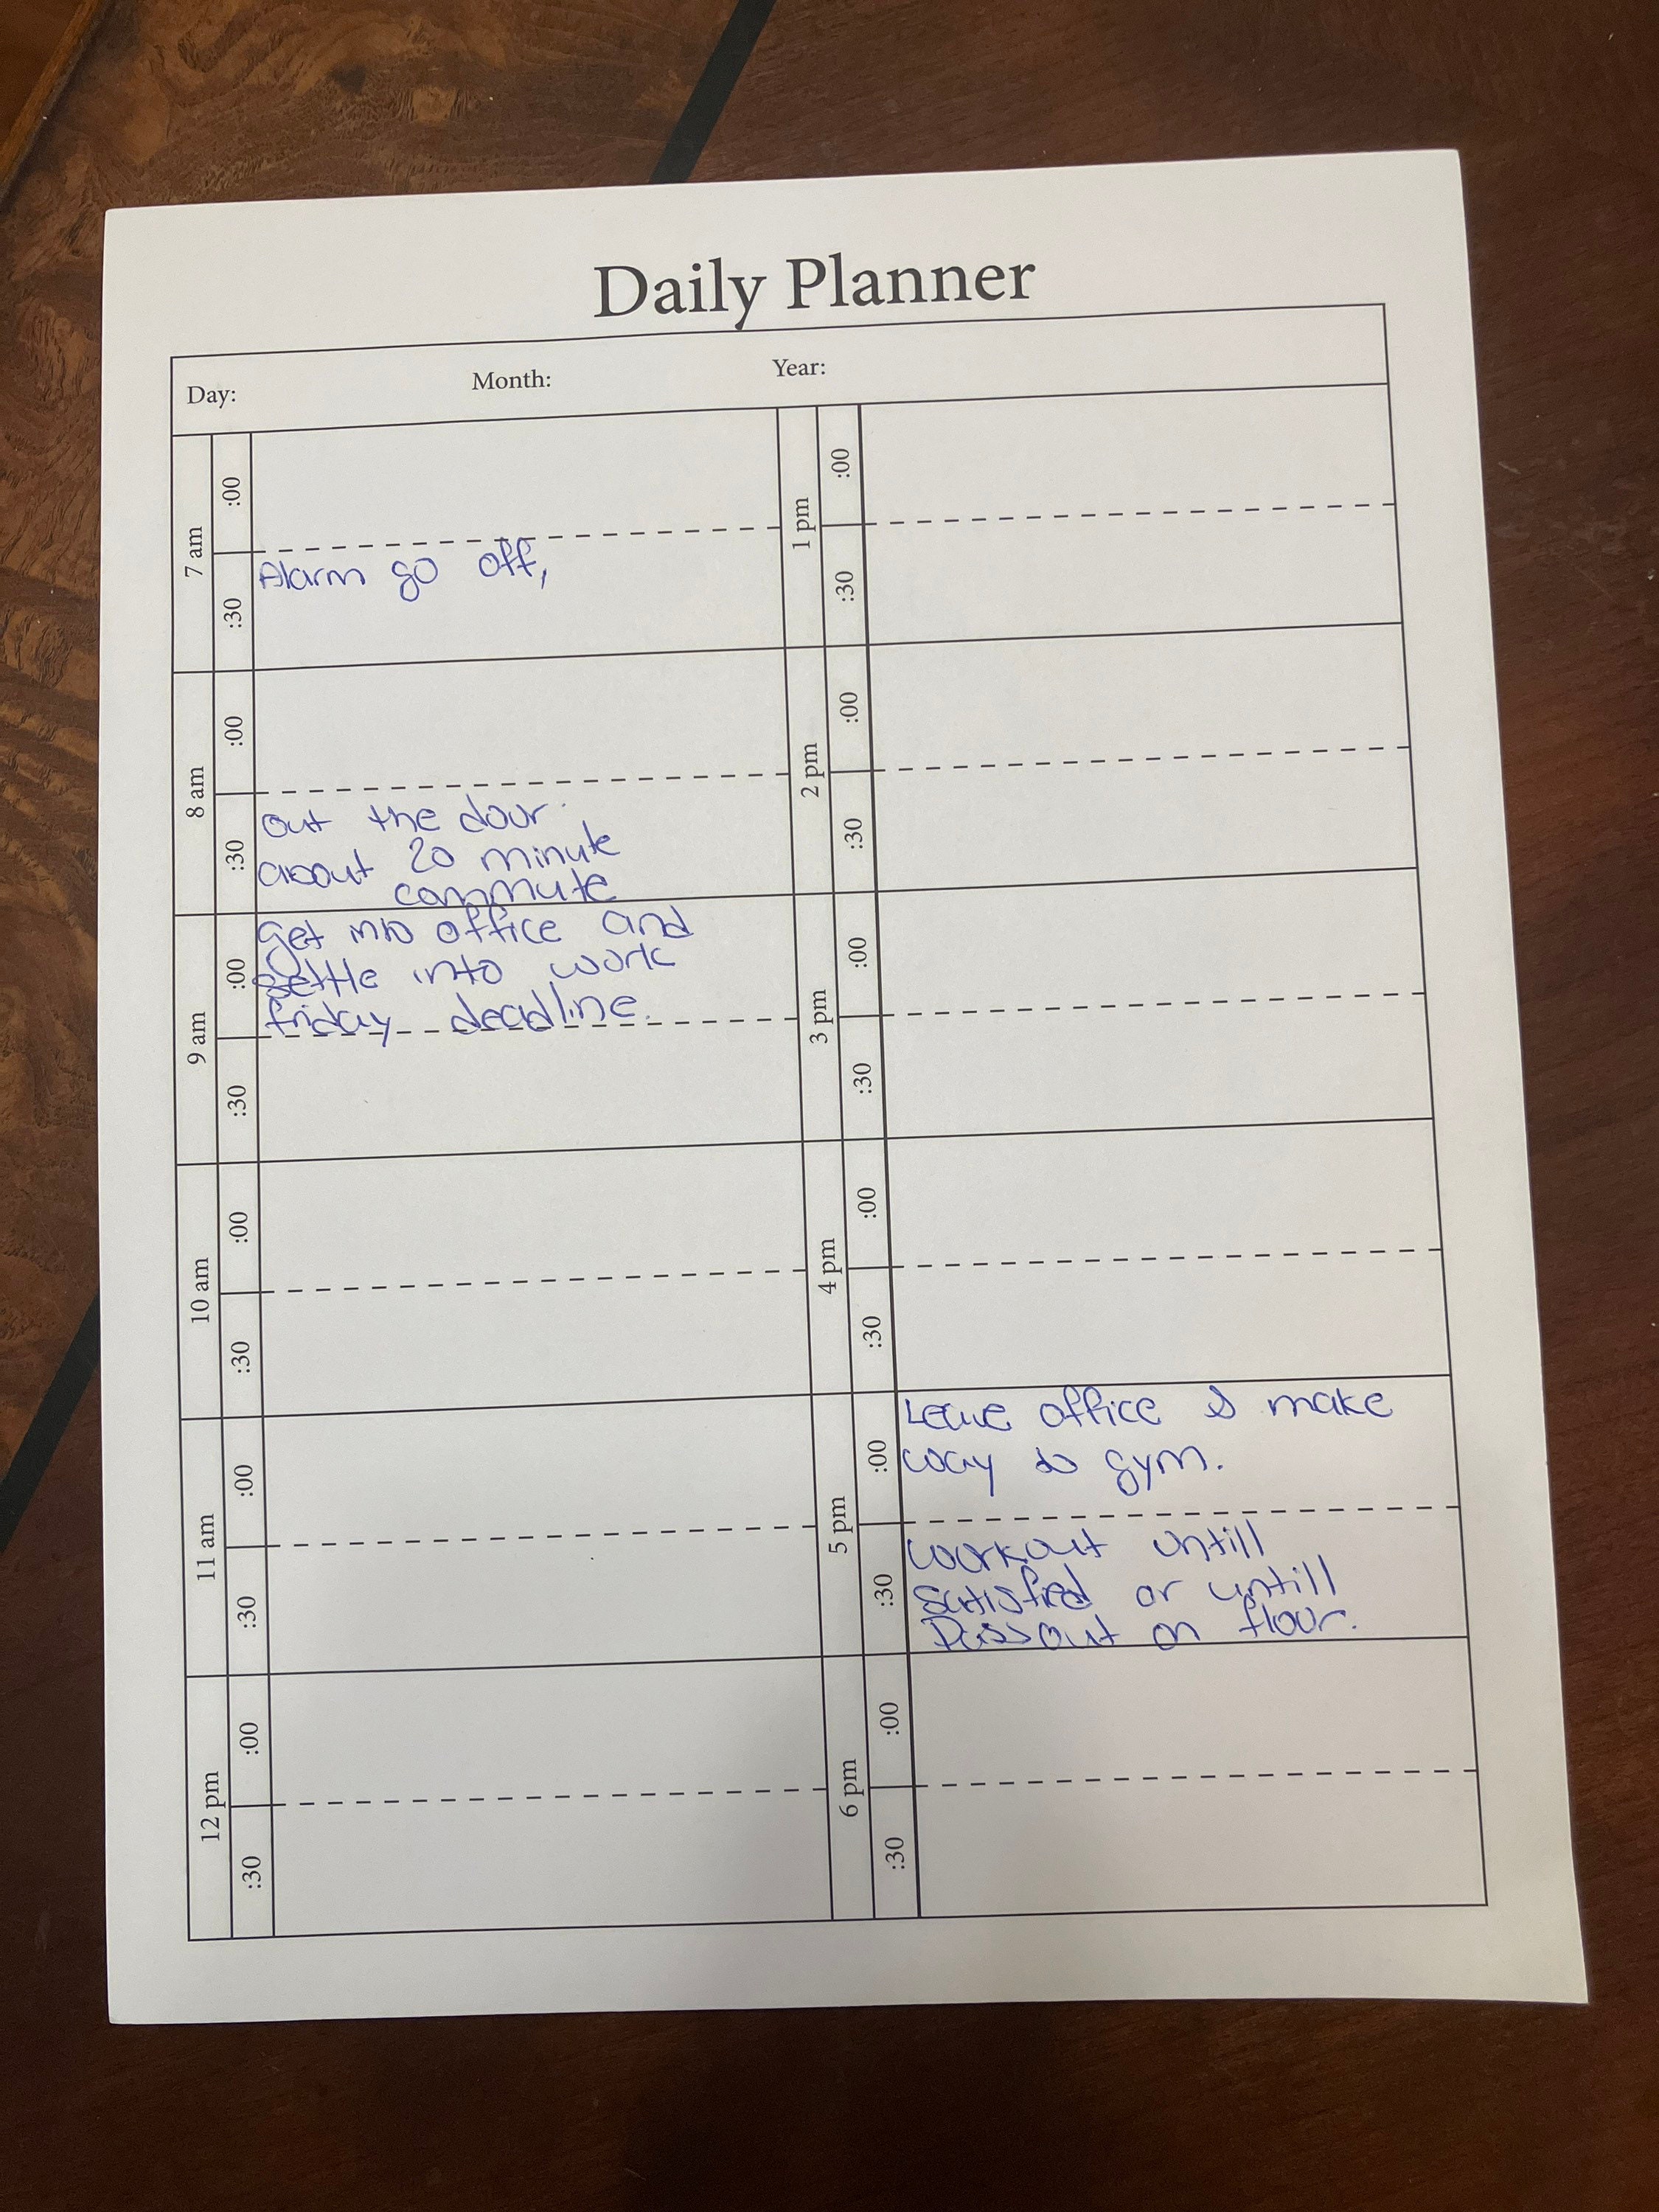 Daily Planner
Day: Month: Year:
7 am
:00
:30
Alarm go off,
8 am
:00
:30
out the door.
about 20 minute
commute
9 am
:00
get into office and
settle into work
friday deadline.
:30
10 am
:00
:30
11 am
:00
:30
12 pm
:00
:30
1 pm
:00
:30
2 pm
:00
:30
3 pm
:00
:30
4 pm
:00
:30
5 pm
:00
Leave office & make
way to gym.
:30
workout untill
satisfied or untill
Pass out on flour.
6 pm
:00
:30